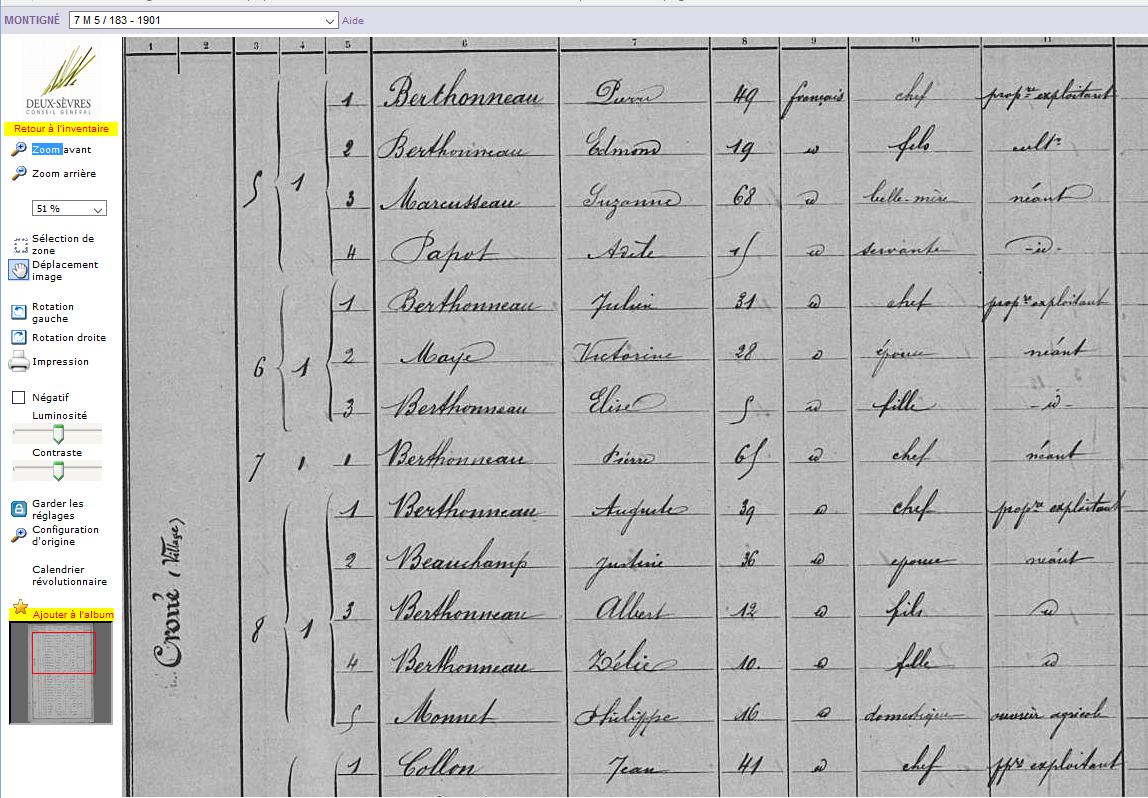 MONTIGNÉ 7 M 5 / 183 - 1901 Aide
DEUX-SÈVRES
CONSEIL GÉNÉRAL
Retour à l'inventaire
Zoom avant
Zoom arrière
51 %
Sélection de
zone
Déplacement
image
Rotation
gauche
Rotation droite
Impression
Négatif
Luminosité
Contraste
Garder les
réglages
Configuration
d'origine
Calendrier
révolutionnaire
Ajouter à l'album
1 2 3 4 5 6 7 8 9 10 11
Crorré (Village)
5 1 1 Berthonneau Pierre 49 français chef propre exploitant
2 Berthonneau Edmond 19 id fils cultr
3 Marcusseau Suzanne 68 id belle-mère néant
4 Papot Adèle 15 id servante -id-
6 1 1 Berthonneau Julien 31 id chef propre exploitant
2 Mayé Victorine 28 id épouse néant
3 Berthonneau Elise 5 id fille -id-
7 1 1 Berthonneau Pierre 65 id chef néant
8 1 1 Berthonneau Auguste 39 id chef propre exploitant
2 Beauchamp Justine 36 id epouse néant
3 Berthonneau Albert 12 id fils id
4 Berthonneau Zélie 10. id fille id
5 Monnet Philippe 16 id domestique ouvrier agricole
1 Collon Jean 41 id chef ppre exploitant